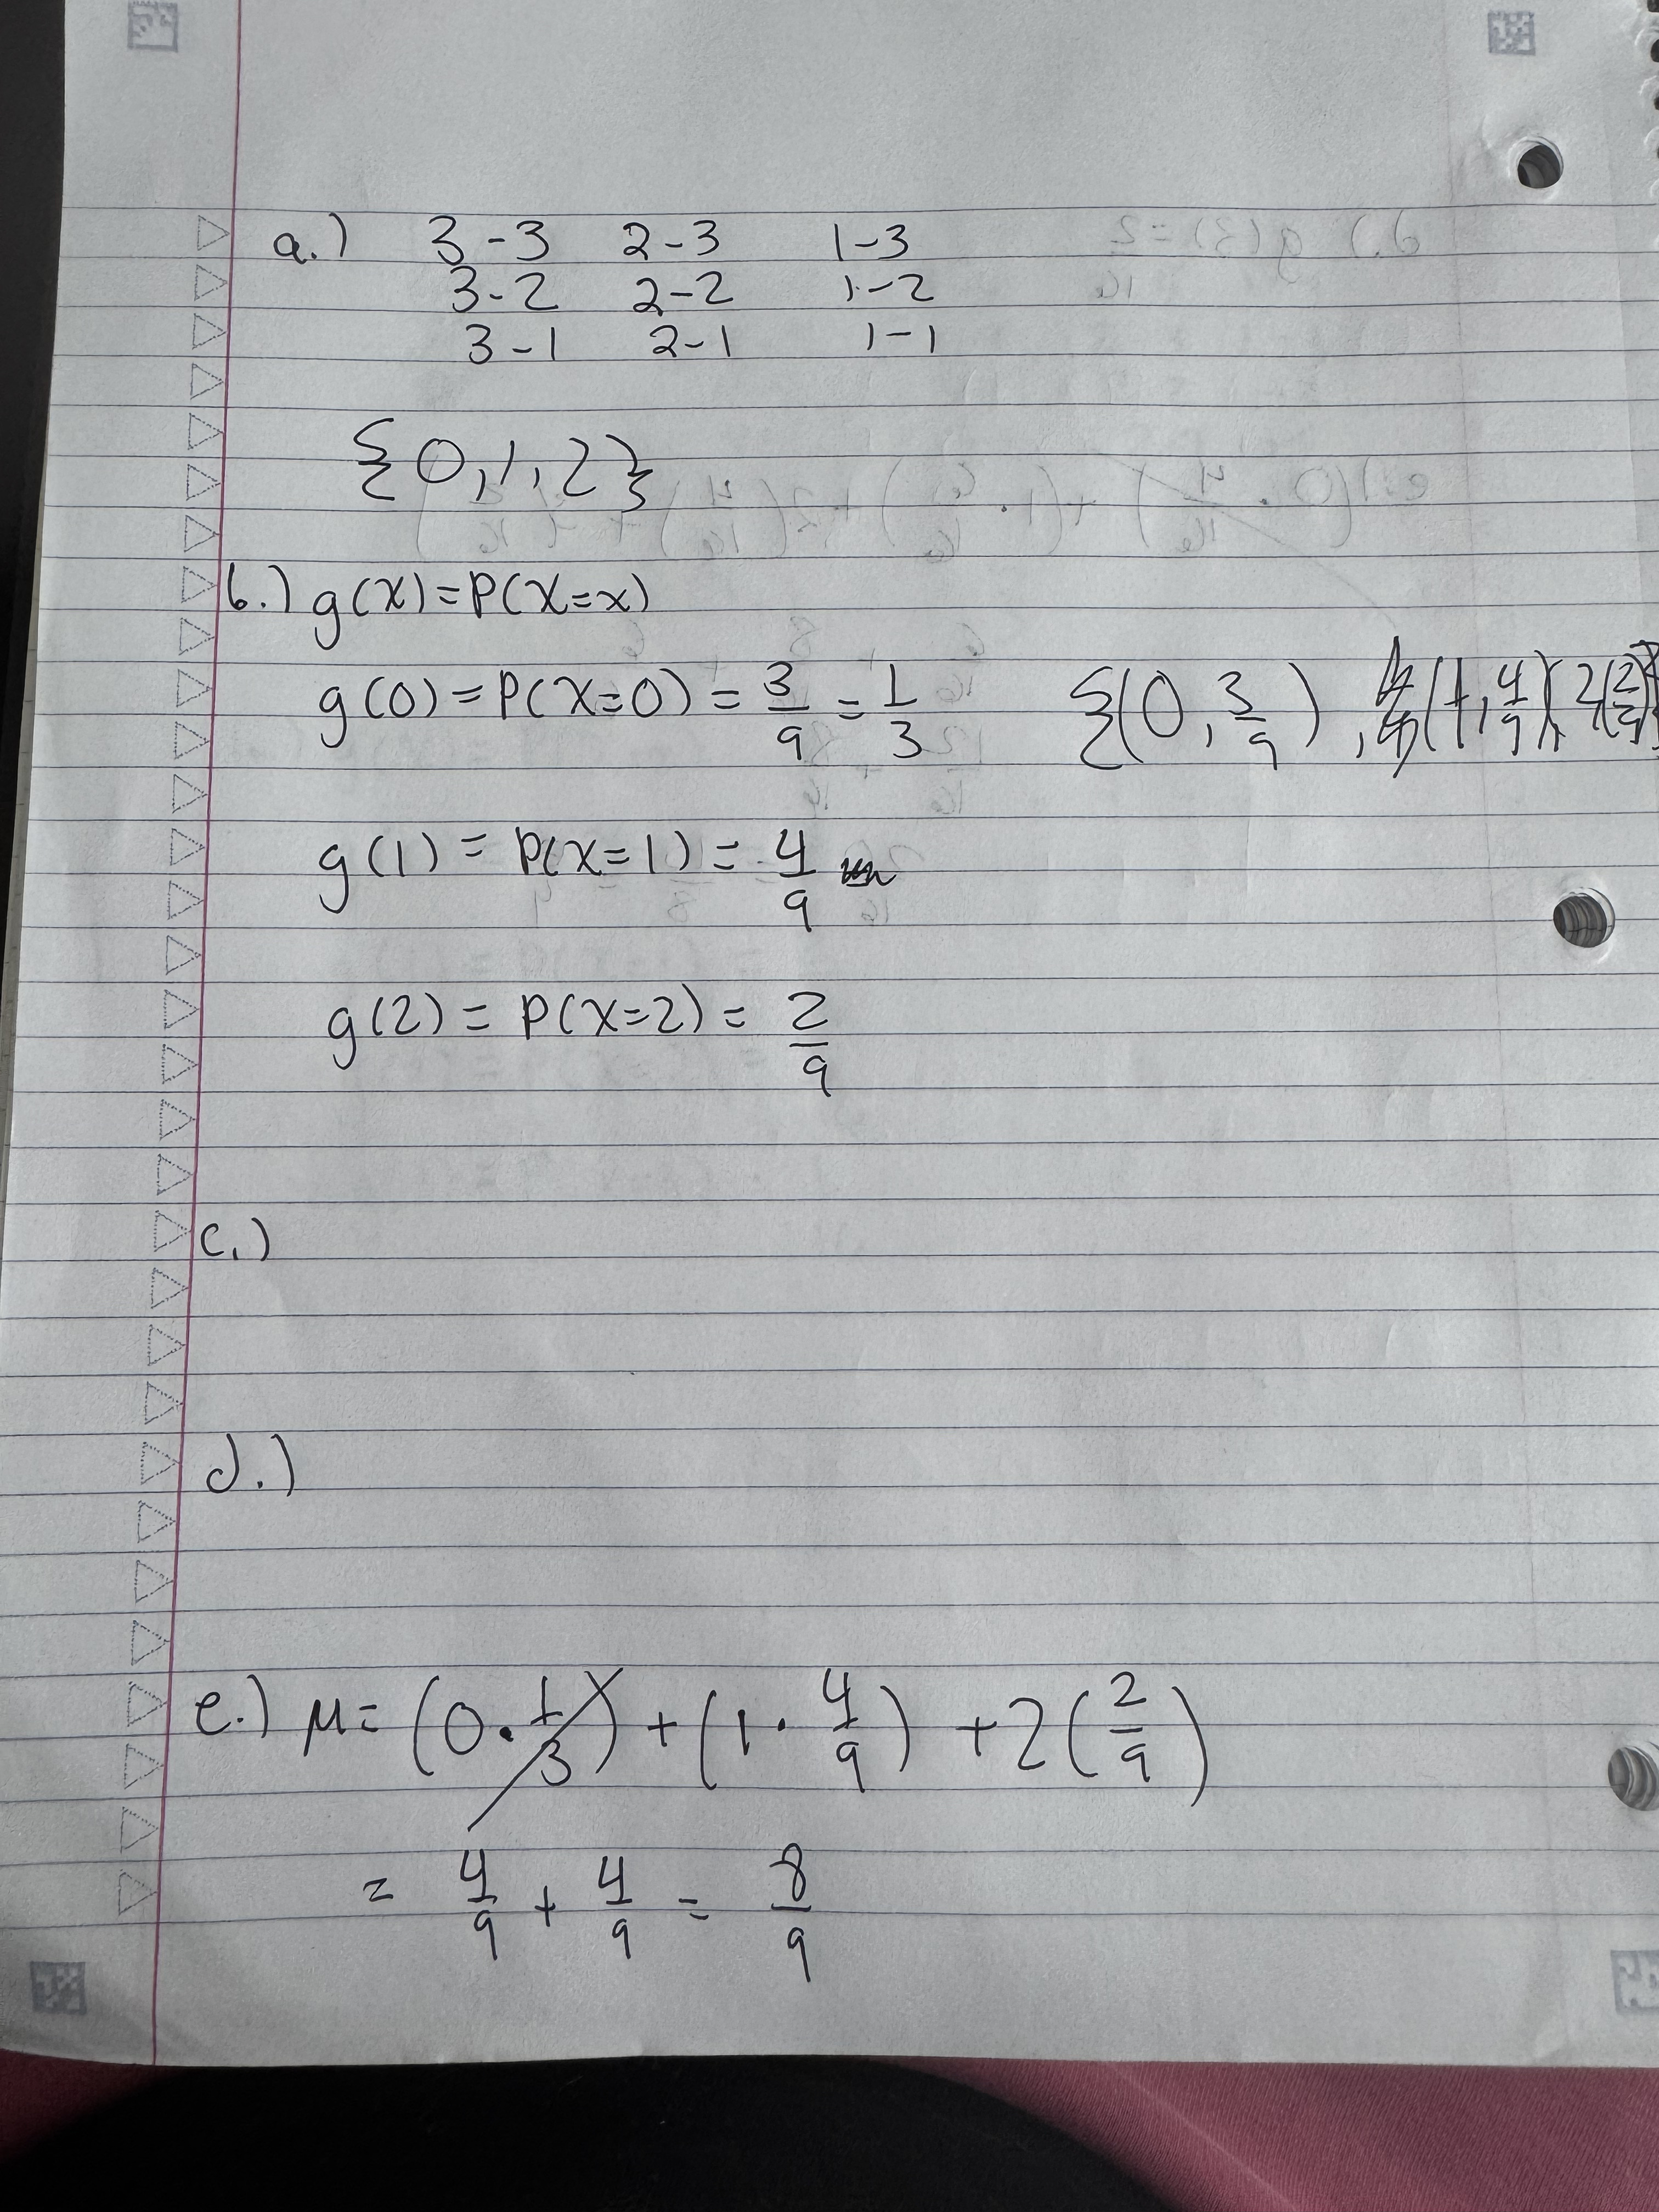 a.) 3-3 2-3 1-3
3-2 2-2 1-2
3-1 2-1 1-1
{0,1,2}
b.) g(x)=P(X=x)
g(0)=P(X=0)=3/9=1/3 {(0,3/9), (1,4/9), 2(2/9)}
g(1)=P(X=1)=4/9
g(2)=P(X=2)=2/9
c.)
d.)
e.) μ=(0·1/3)+(1·4/9)+2(2/9)
=4/9+4/9=8/9